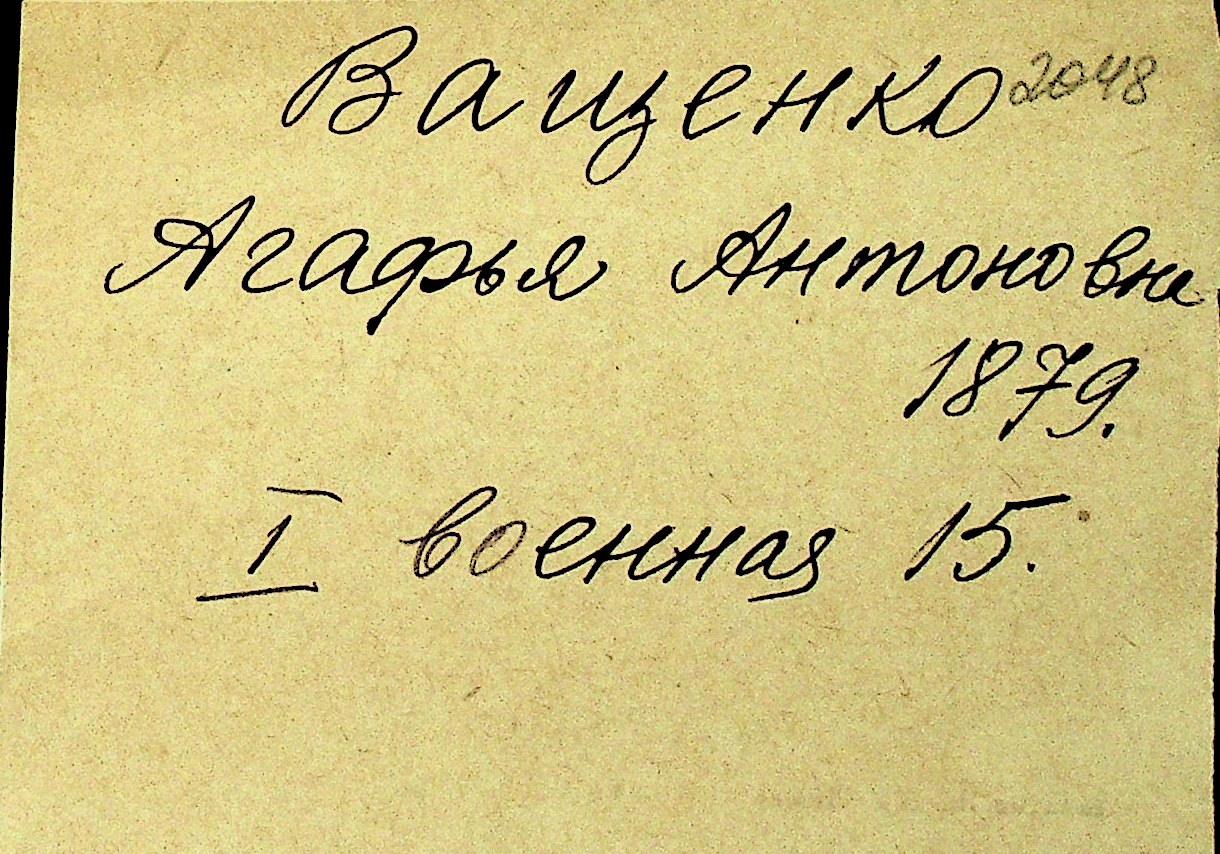 Ващенко 2048
Агафья Антоновна
1879.
I военная 15.